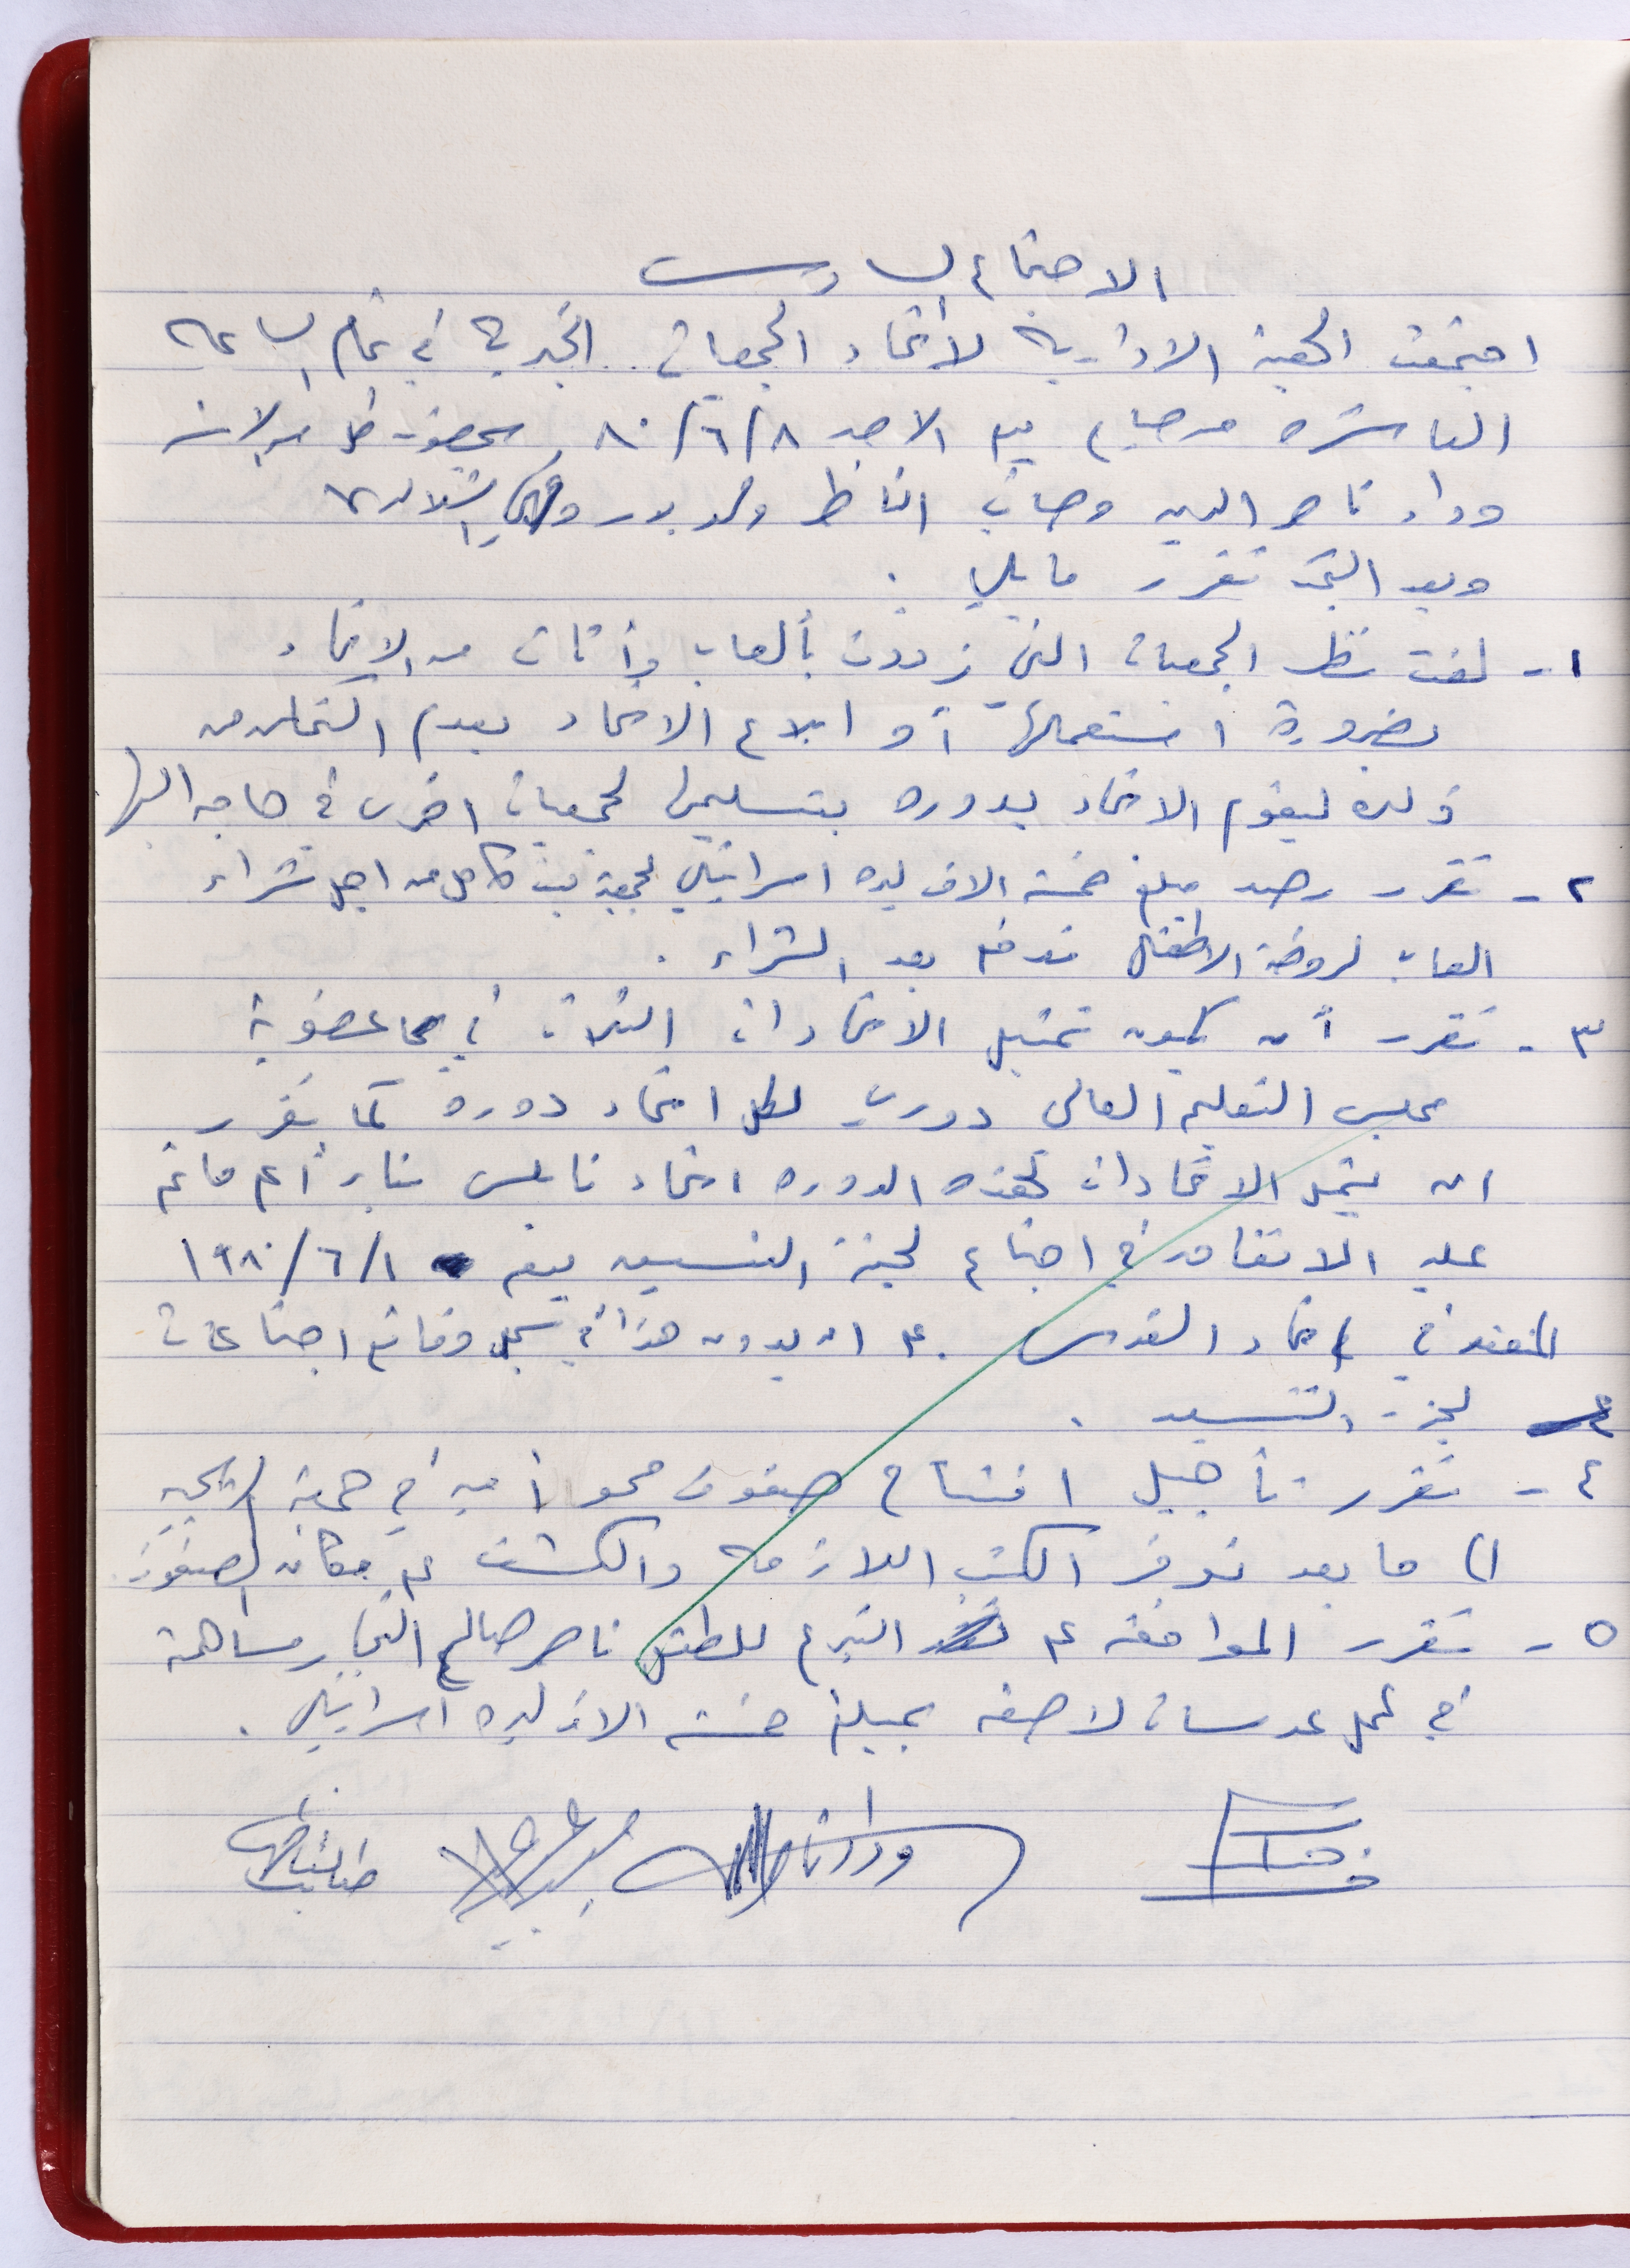 الاجتماع السادس
اجتمعت الهيئة الادارية لاتحاد الجمعيات الخيرية في تمام الساعة
العاشرة صباحا يوم الاحد ٨/٦/٨٠ بحضور كل من الانسه
وداد ناصر الدين وصائب الناظر و بدر
وبعد البحث تقرر ما يلي .
١- لفت نظر الجمعيات التي زودت بألعاب وأثاث من الاتحاد
بضرورة استعمالها أو ابلاغ الاتحاد بعدم التمكن من
ذلك ليقوم الاتحاد بدوره بتسليمها لجمعيات اخرى في حاجه اليها
٢- تقرر رصد مبلغ خمسة الاف ليره اسرائيلي لجمعية بيت كاحل من اجل شراء
العاب لروضة الاطفال تدفع بعد الشراء .
٣- تقرر أن يكون تمثيل الاتحادات الثلاث في عضوية
مجلس التعليم العالي دوري لكل اتحاد دوره كما يقرر
ان يمثل الاتحادات لهذه الدوره اتحاد نابلس بناء على ما تم
عليه الاتفاق في اجتماع لجنة التنسيق يوم ١/٦/١٩٨٠
المنعقد في اتحاد القدس . على ان يدون هذا في سجل وقائع اجتماعات
لجنة التنسيق .
٤- تقرر تأجيل افتتاح صفوف محو أميه في جمعية
الى ما بعد توفر الكتب اللازمه والكشف على مكان الصفوف
٥- تقرر الموافقه على التبرع للطفل ناصر صالح النجار مساهمة
في عمل عدسات لاصقه بمبلغ خمسة الاف ليره اسرائيلي .